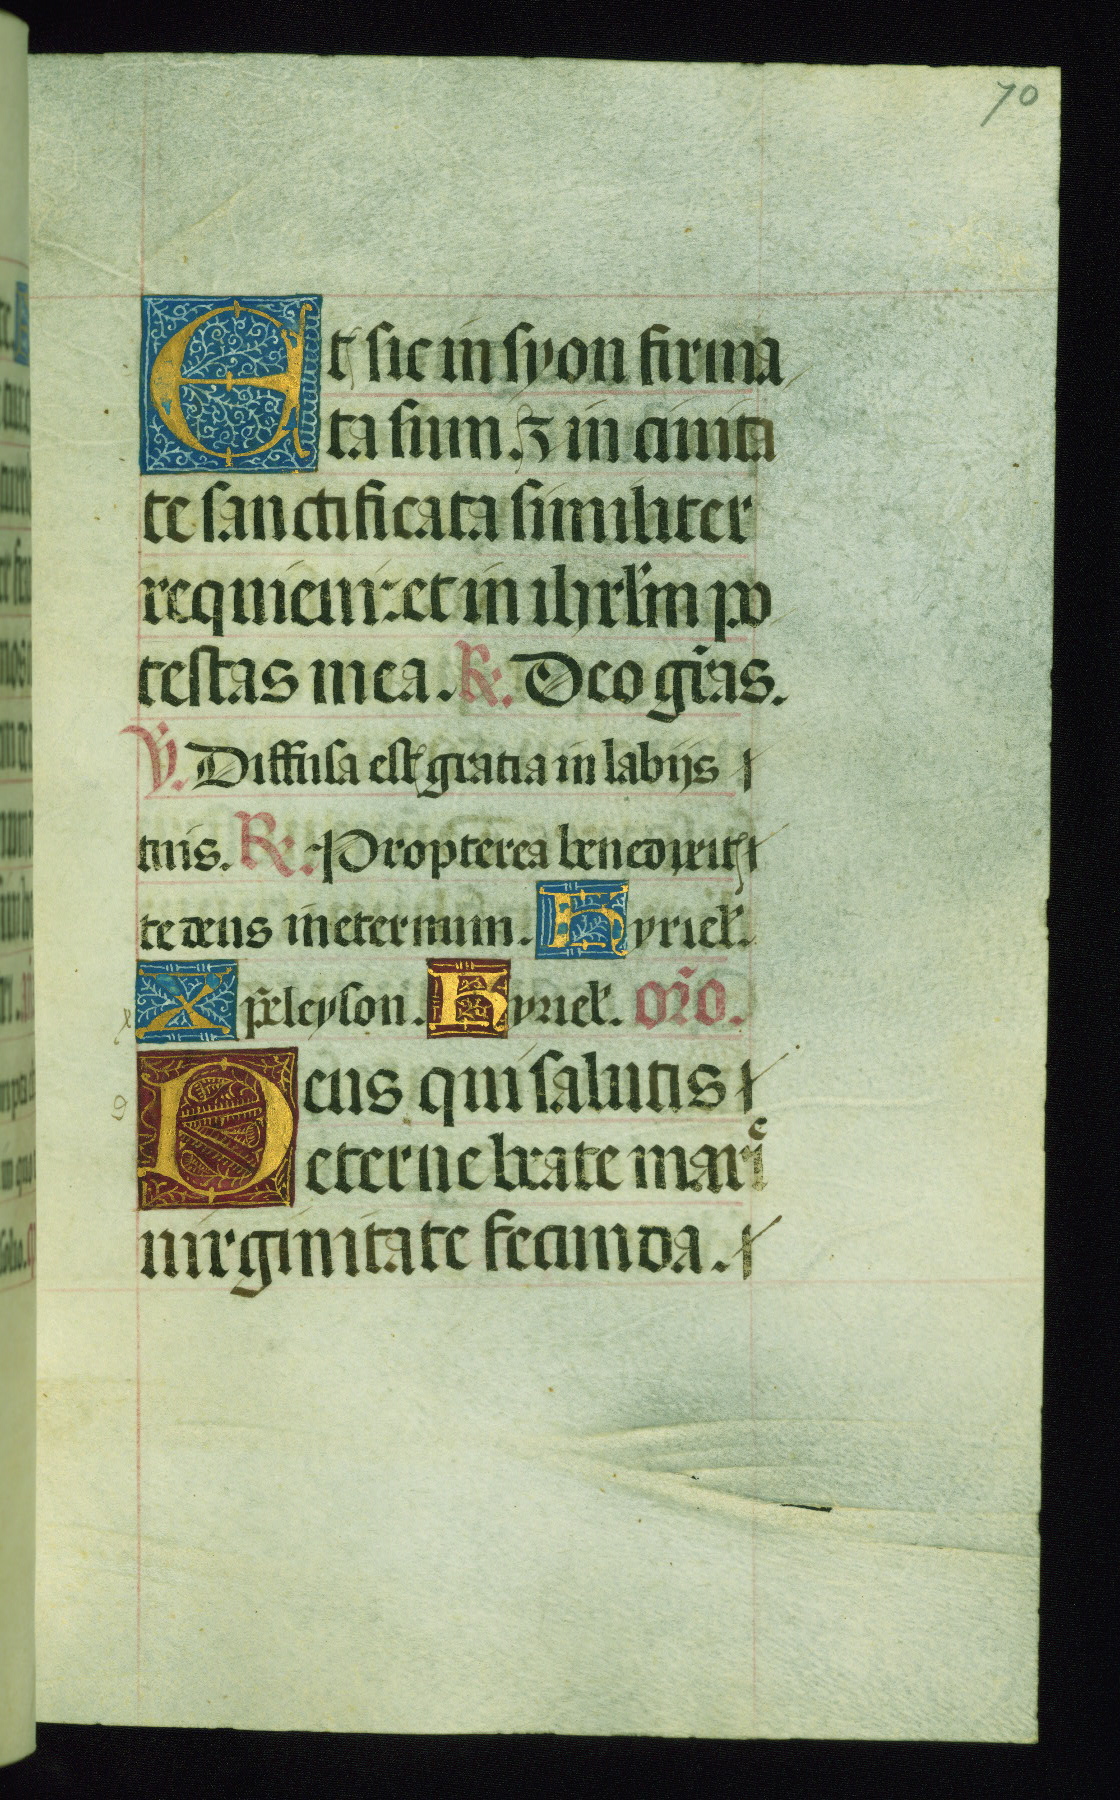 70
Et sic in syon firma
ta sum. ⁊ in ciuita
te sanctificata similiter
requieui: et in ihrl̄m po
testas mea. R. Deo gr̄as.
V. Diffusa est gratia in labijs
tuis. R. Propterea benedixit
te deus in eternum. Kyriel̄.
x Xp̄eleyson. Kyriel̄. or̄o.
Deus qui salutis
eterne beate marie
uirginitate fecunda.